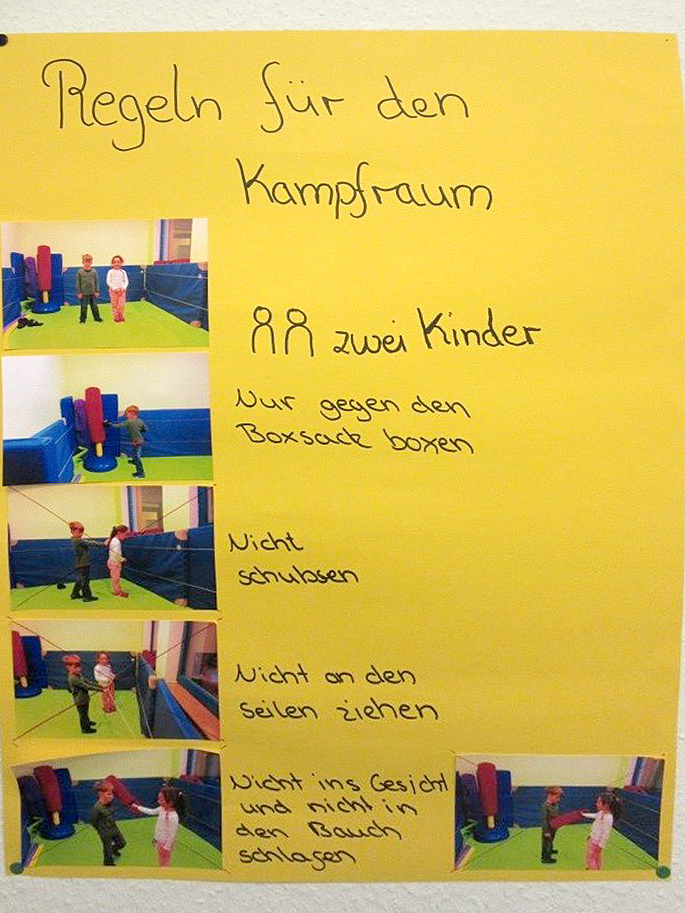 Regeln für den
Kampfraum
zwei Kinder
Nur gegen den
Boxsack boxen
Nicht
schubsen
Nicht an den
Seilen ziehen
Nicht ins Gesicht
und nicht in
den Bauch
schlagen